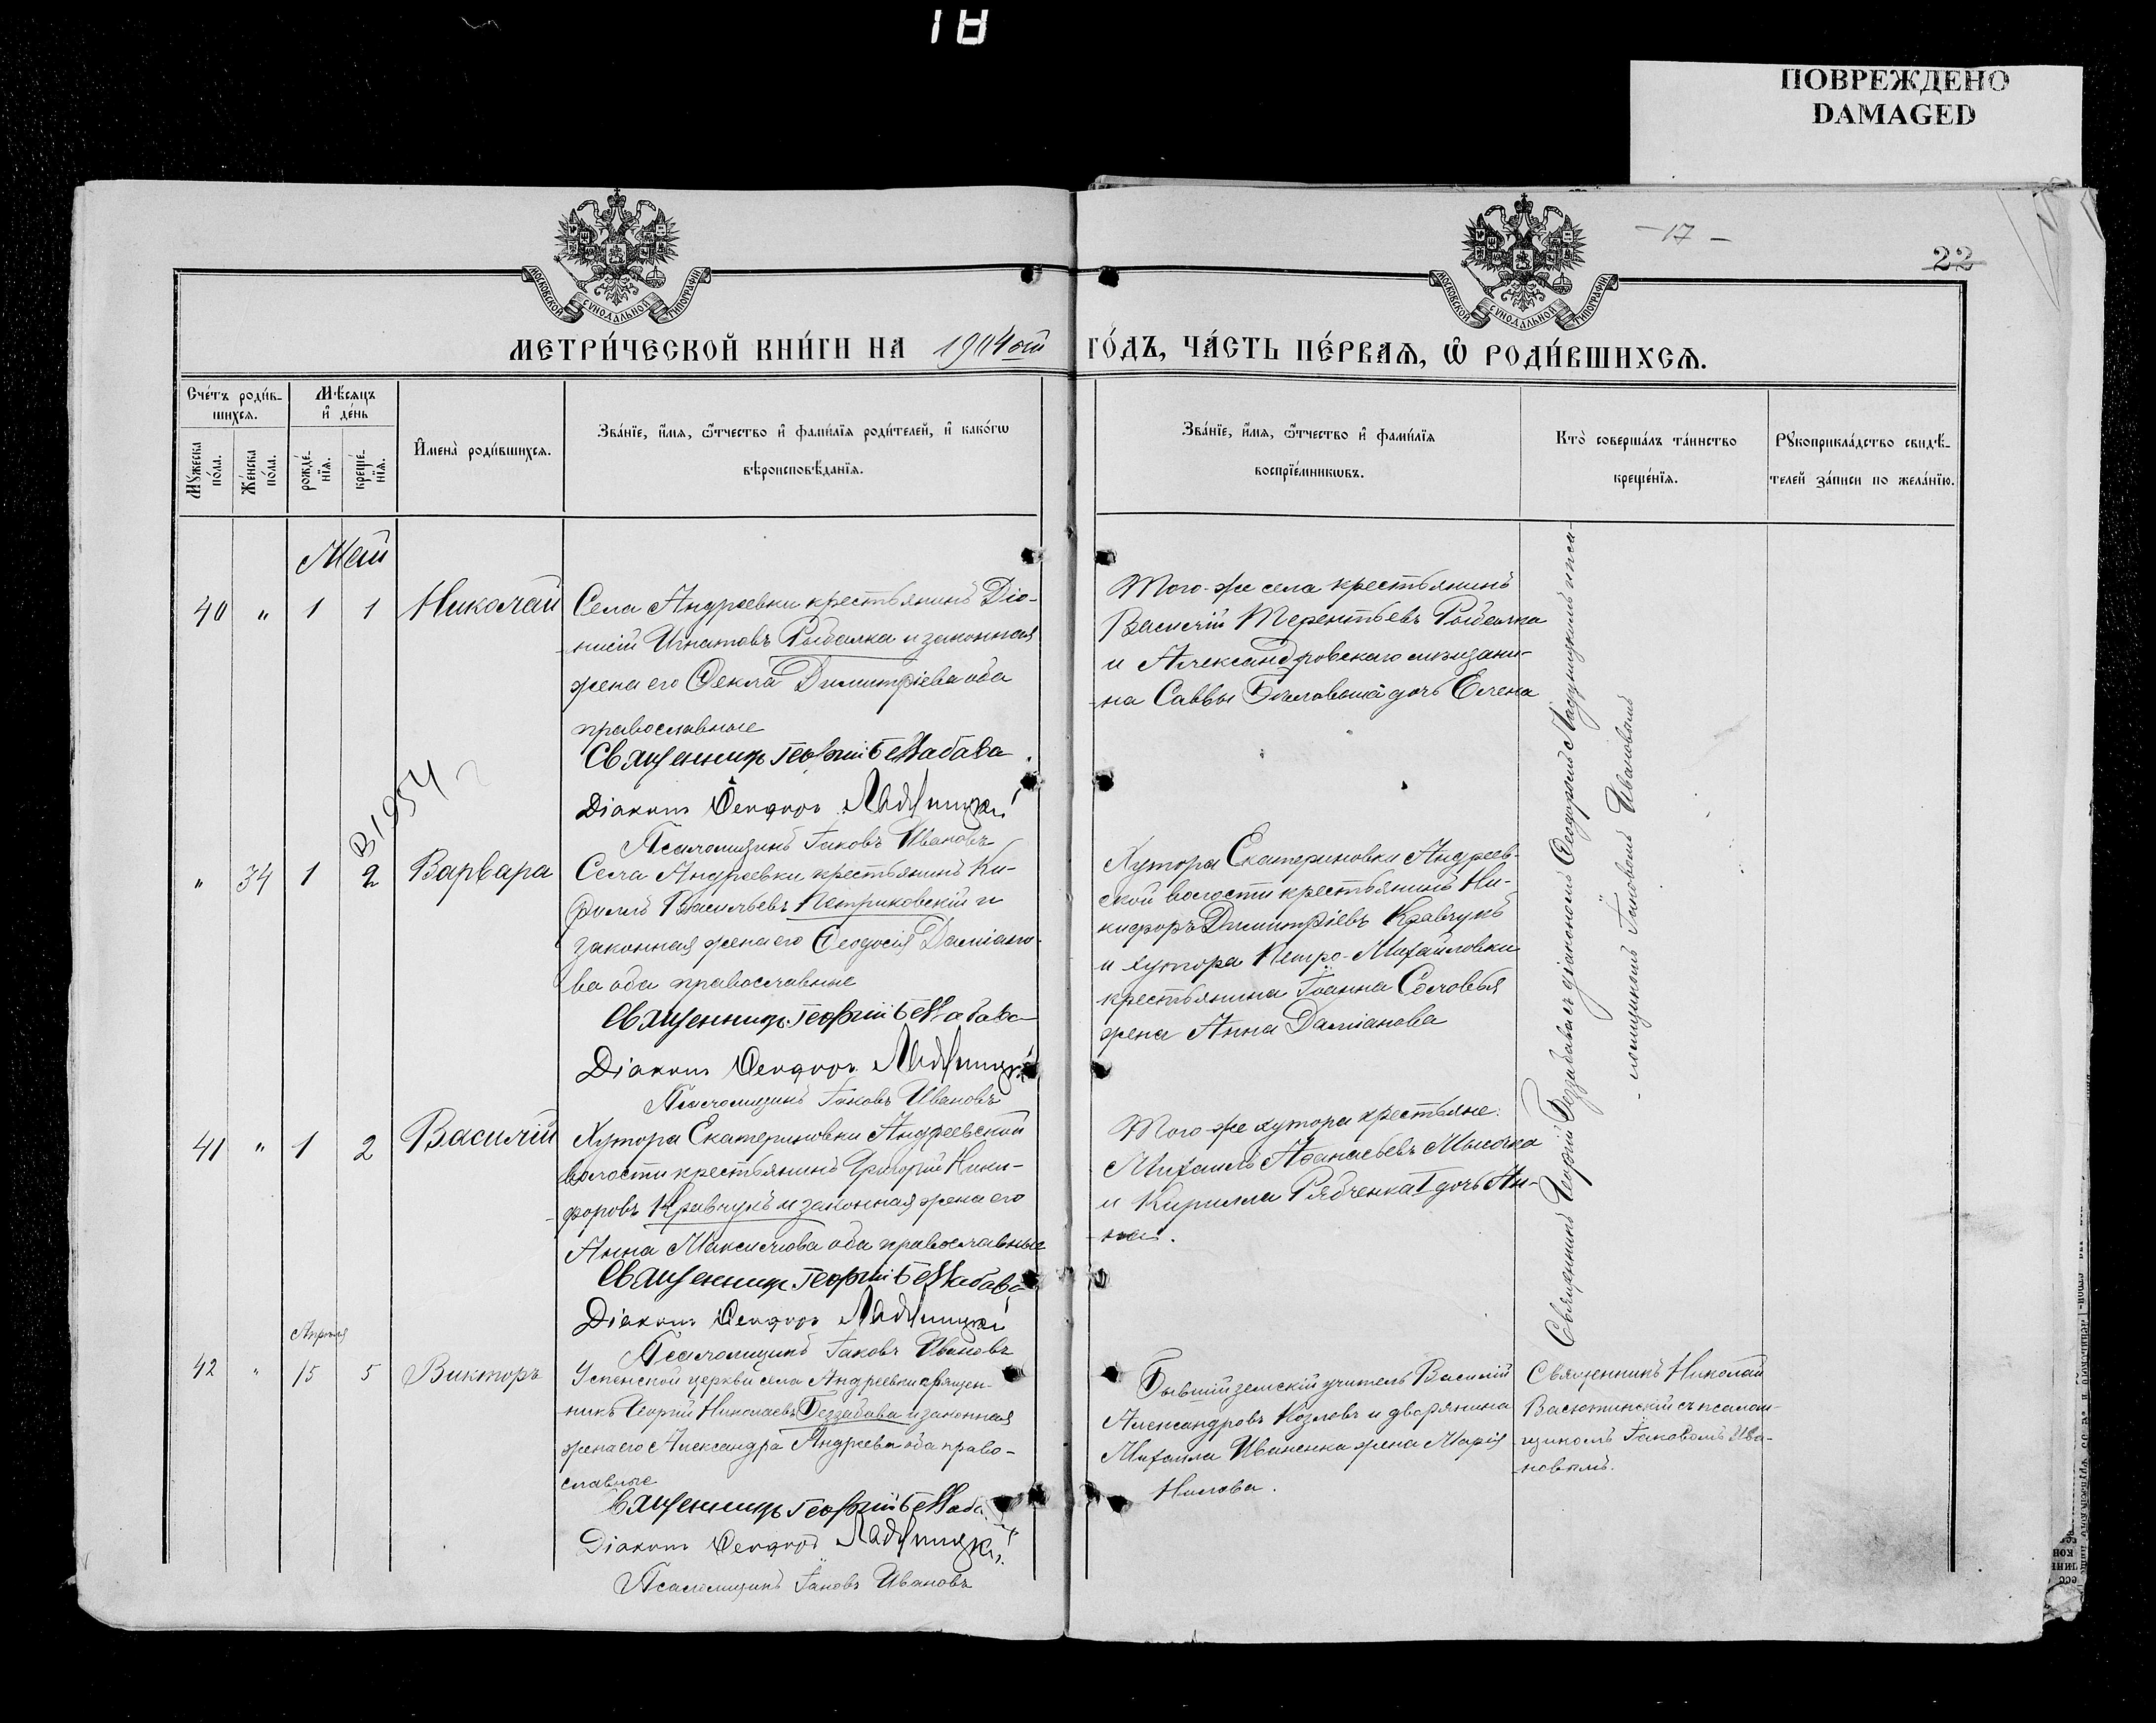 18
ПОВРЕЖДЕНО
DAMAGED
МОСКОВСКОЙ СѴНОДАЛЬНОЙ ТИПОГРАФІИ
МОСКОВСКОЙ СѴНОДАЛЬНОЙ ТИПОГРАФІИ
- 17 -
22
МЕТРИ́ЧЕСКОЙ КНИ́ГИ НА 1904 ой ГО́ДЪ, ЧА́СТЬ ПЕ́РВАѦ, Ѡ҆ РОДИ́ВШИХСѦ.
Сче́тъ роди́в-
шихсѧ.
Мꙋжеска по́ла.
Же́нска по́ла.
Мѣ́сѧцъ
и҆ де́нь
рожде́-
нїѧ.
креще́-
нїѧ.
И҆мена̀ роди́вшихсѧ.
Зва́нїе, и҆́мѧ, ѻ҆́тчество и҆ фами́лїѧ роди́телей, и҆ како́гѡ
вѣроисповѣ́данїѧ.
Зва́нїе, и҆́мѧ, ѻ҆́тчество и҆ фами́лїѧ
воспрїе́мникѡвъ.
Кто̀ соверша́лъ та́инство
креще́нїѧ.
Рꙋкоприкла́дство свидѣ́-
телей за́писи по жела́нїю.
Май
40 " 1 1 Николай
Села Андреевки крестьянинъ Діо-
нисій Игнатовъ Рыбалка и законная
жена его Ѳекла Димитріева оба
православные
Священникъ Георгій Беззабава
Діаконъ Ѳеодоръ Ладухницкій
Псаломщикъ Іаковъ Ивановъ
Того-же села крестьянинъ
Василій Терентьевъ Рыбалка
и Александровскаго мѣщани-
на Саввы дочь Елена
В 1954
" 34 1 2 Варвара
Села Андреевки крестьянинъ Ки-
риллъ Васильевъ Петриковскій и
законная жена его Ѳеодосія Даміано-
ва оба православные
Священникъ Георгій Беззабава
Діаконъ Ѳеодоръ Ладухницкій
Псаломщикъ Іаковъ Ивановъ
Хутора Екатериновки Андреев-
ской волости крестьянинъ Ни-
кифоръ Димитріевъ Кравчукъ
и хутора Петро-Михайловки
крестьянина Іоанна Соловья
жена Анна Даміанова
41 " 1 2 Василій
Хутора Екатериновки Андреевской
волости крестьянинъ Григорій Ники-
форовъ Кравчукъ и законная жена его
Анна Максимова оба православные
Священникъ Георгій Беззабава
Діаконъ Ѳеодоръ Ладухницкій
Псаломщикъ Іаковъ Ивановъ
Того-же хутора крестьяне:
Михаилъ Аѳанасьевъ
и Кирилла Рябченка дочь Ан-
на.
Священникъ Георгій Беззабава съ діакономъ Ѳеодоромъ Ладухницкимъ и пса-
ломщикомъ Іаковомъ Ивановымъ
Апрѣля
42 " 15 5 Викторъ
Успенской церкви села Андреевки священ-
никъ Георгій Николаевъ Беззабава и законная
жена его Александра Андреева оба право-
славные
Священникъ Георгій Беззабава
Діаконъ Ѳеодоръ Ладухницкій
Псаломщикъ Іаковъ Ивановъ
Бывшій земскій учитель Василій
Александровъ Козловъ и дворянина
Михаила Иваненка жена Марія
Нилова.
Священникъ Николай
Васютинскій съ псалом-
щикомъ Іаковомъ Ива-
новымъ.